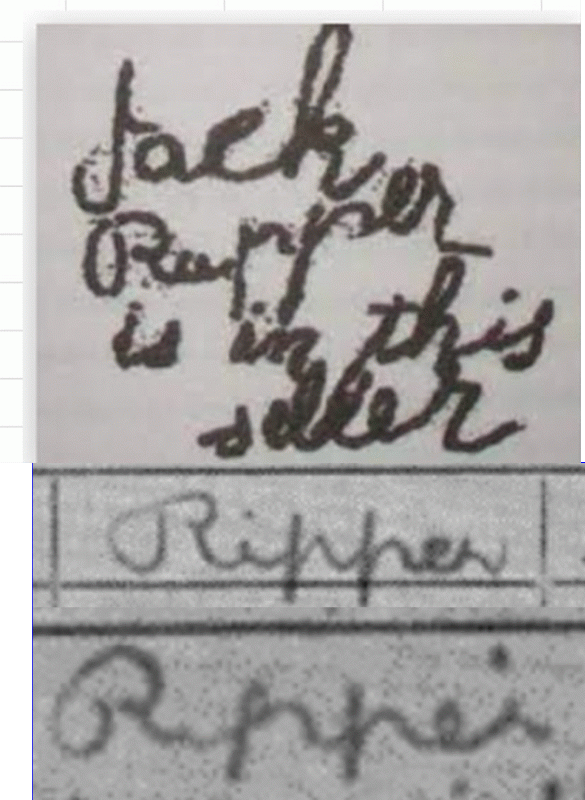 Jack
Ripper
is in this
seller
Ripper
Ripper